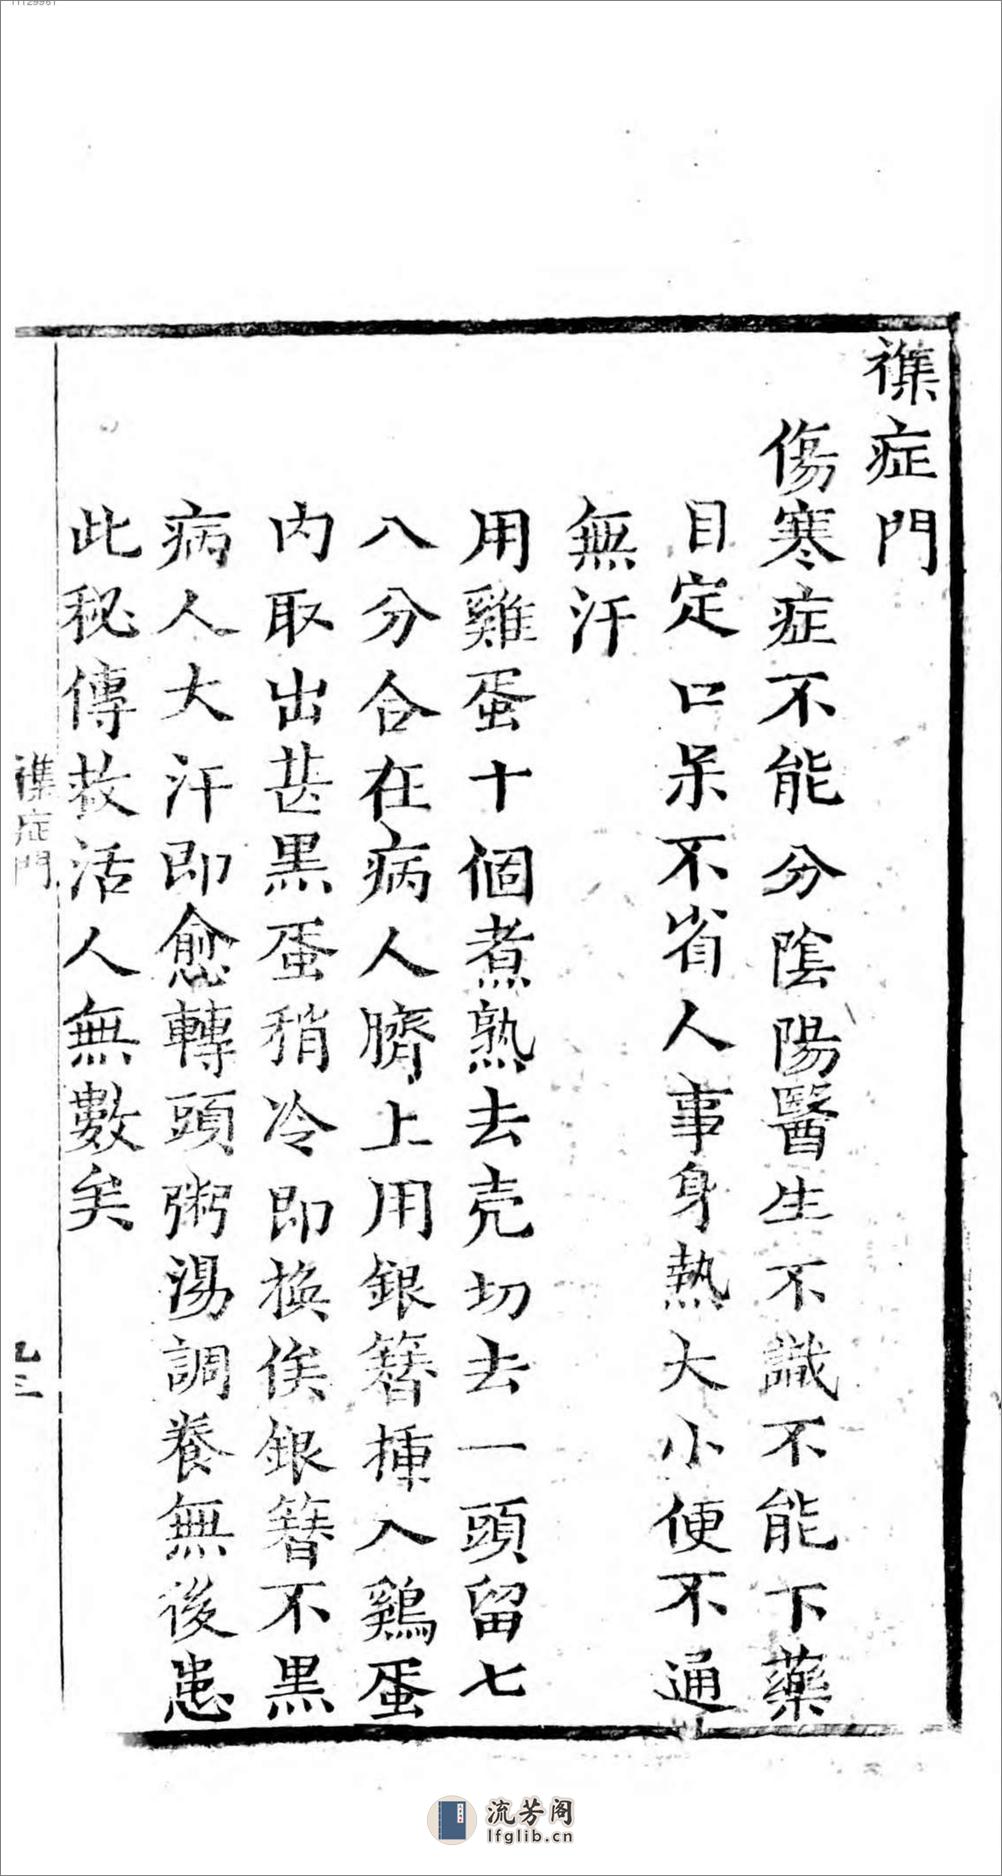 襍症門
傷寒症不能分陰陽醫生不識不能下藥
目定口呆不省人事身熱大小便不通
無汗
用雞蛋十個煮熟去壳切去一頭留七
八分合在病人臍上用銀簪揷入鷄蛋
内取出甚黒蛋稍冷即換俟銀簪不黒
病人大汗即愈轉頭粥湯調養無後患
此秘傳救活人無數矣
襍症門
九三
流芳阁
lfglib.cn